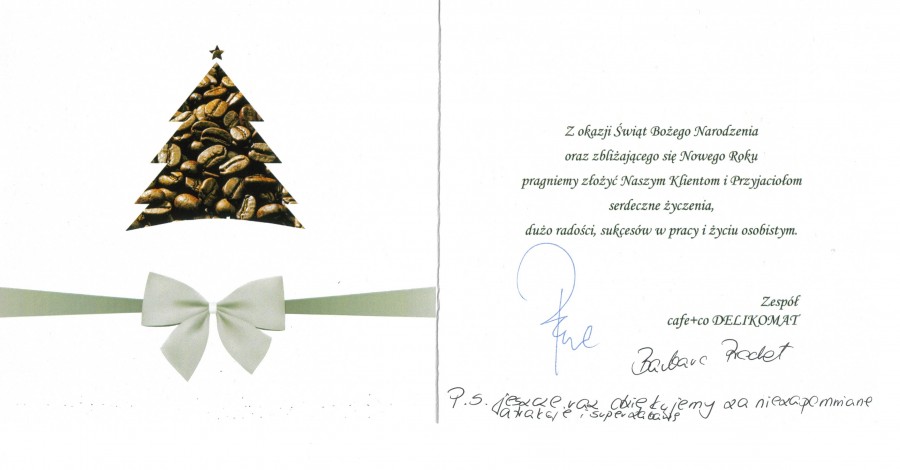 Z okazji Świąt Bożego Narodzenia
oraz zbliżającego się Nowego Roku
pragniemy złożyć Naszym Klientom i Przyjaciołom
serdeczne życzenia,
dużo radości, sukcesów w pracy i życiu osobistym.
Zespół
cafe+co DELIKOMAT
Barbara
P.S. jeszcze raz dziękujemy za niezapomniane
atrakcje i superzabawę